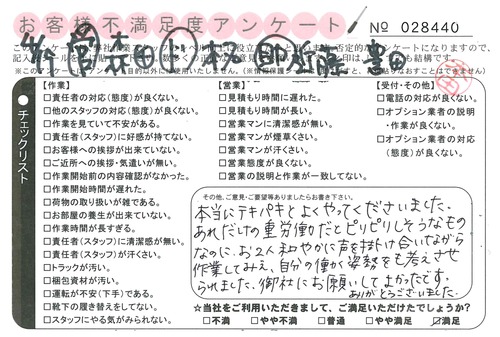 お客様不満足度アンケート
No 028440
【作業】
□責任者の対応(態度)が良くない。
□他のスタッフの対応(態度)が良くない。
□作業を見ていて不安がある。
□責任者(スタッフ)に好感が持てない。
□お客様への挨拶が出来ていない。
□ご近所への挨拶・気遣いが無い。
□作業開始前の内容確認がなかった。
□作業開始時間が遅れた。
□荷物の取り扱いが雑である。
□お部屋の養生が出来ていない。
□作業時間が長すぎる。
□責任者(スタッフ)に清潔感が無い。
□責任者(スタッフ)が汗くさい。
□トラックが汚い。
□梱包資材が汚い。
□運転が不安(下手)である。
□靴下の履き替えをしてない。
□スタッフにやる気がみられない。
【営業】
□見積もり時間に遅れた。
□見積もり時間が長い。
□営業マンに清潔感が無い。
□営業マンが煙草くさい。
□営業マンが汗くさい。
□営業態度が良くない。
□営業の説明と作業が一致してない。
【受付・その他】
□電話の対応が良くない。
□オプション業者の説明
・作業が良くない。
□オプション業者の対応
(態度)が良くない。
チェックリスト
その他、ご意見・ご要望等ありましたらお書き下さい。
本当にテキパキとよくやってくださいました。
あれだけの重労働だとピリピリしそうなもの
なのに、お2人和やかに声を掛け合いながら
作業してみえ、自分の働く姿勢をも考えさせ
られました。御社にお願いしてよかったです。
ありがとうございました。
☆当社をご利用いただきまして、ご満足いただけたでしょうか?
□不満 □やや不満 □普通 □やや満足 ☑満足